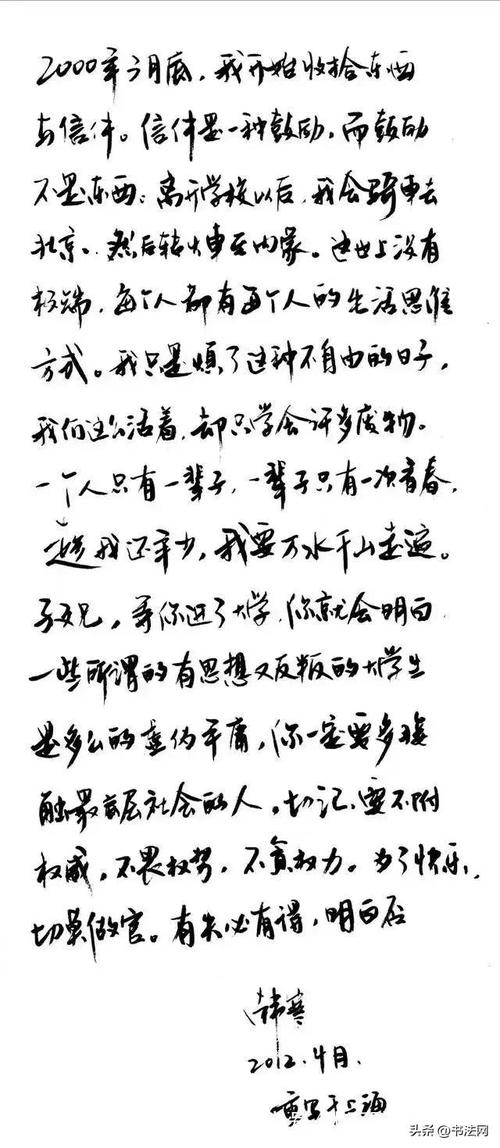 2000年3月底，我开始收拾东西
与信件。信件是一种鼓励，而鼓励
不是东西；离开学校以后，我会骑车去
北京、然后转火车至内蒙。这世上没有
极端，每个人都有每个人的生活思维
方式。我只是烦了这种不自由的日子，
我们这么活着，却只学会许多废物。
一个人只有一辈子，一辈子只有一次青春，
趁我还年少，我要万水千山走遍。
兄，等你进了大学，你就会明白
一些所谓的有思想又反叛的大学生
是多么的虚伪平庸，你一定要多接
触最底层社会的人。切记，要不附
权威，不畏权势，不贪权力。为了快乐，
切莫做官。有失必有得，明白否
韩寒
2012.4月.
重写于上海
头条@书法网